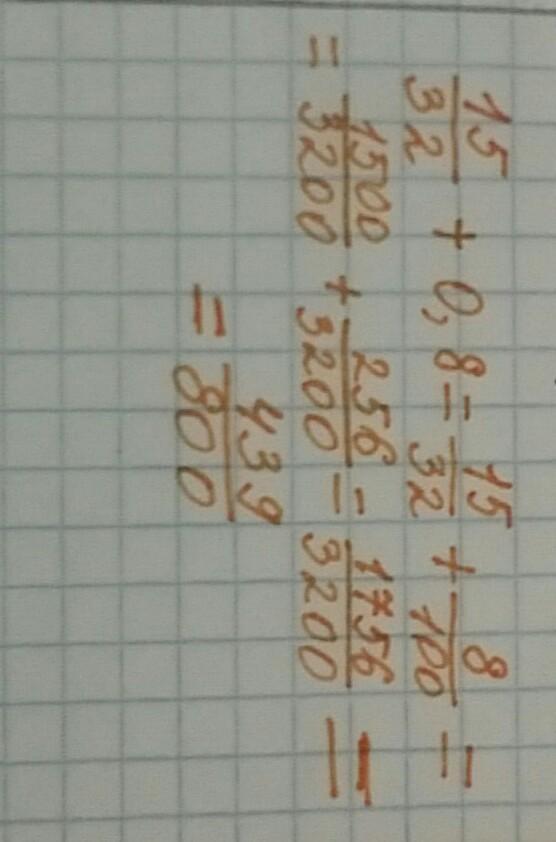 15/32 + 0,8 = 15/32 + 8/100 =
= 1500/3200 + 256/3200 = 1756/3200 =
= 439/800